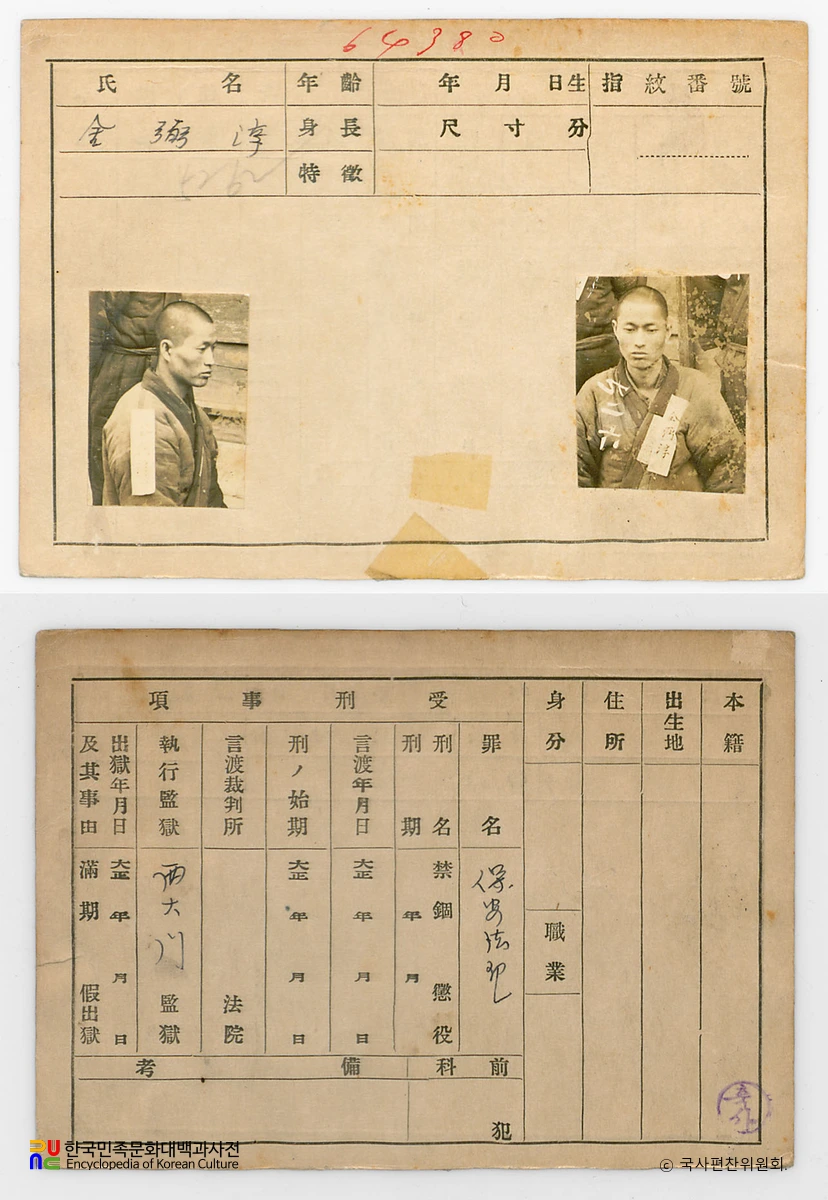 64380
氏名 年齡 年月日生 指紋番號
金弼淳 身長 尺寸分
特徵
金弼淳
本籍
出生地
住所
身分
職業
受刑事項
罪名 保安法犯
刑名 禁錮 懲役
刑期 年月
言渡年月日 大正年月日
刑ノ始期 大正年月日
言渡裁判所 法院
執行監獄 西大川監獄
出獄年月日 大正年月日
及其事由 滿期 假出獄
前科 犯
備考
한국민족문화대백과사전
Encyclopedia of Korean Culture
© 국사편찬위원회